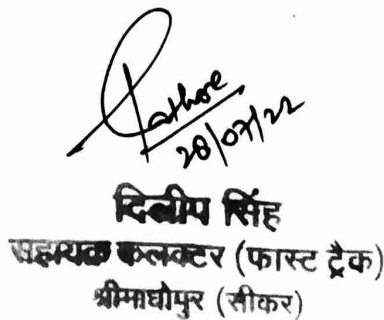 Rathore
28/07/22
दिलीप सिंह
सहायक कलक्टर (फास्ट ट्रैक)
श्रीमाधोपुर (सीकर)